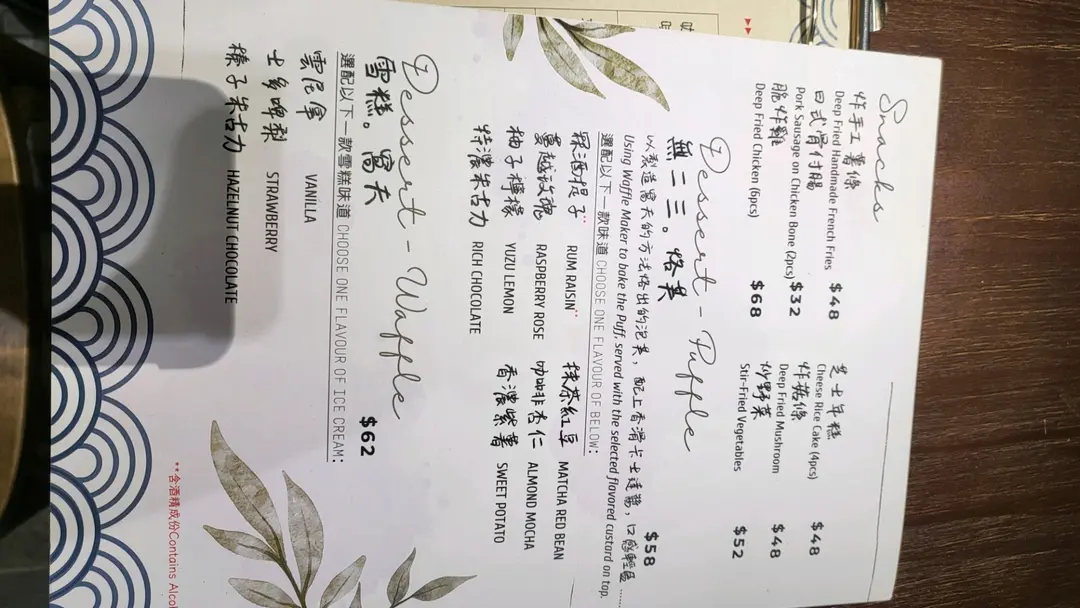 Snacks
炸手工薯條
Deep Fried Handmade French Fries $48
日式骨付腸
Pork Sausage on Chicken Bone (2pcs) $32
脆炸雞
Deep Fried Chicken (6pcs) $68
芝士年糕
Cheese Rice Cake (4pcs) $48
炸菇條
Deep Fried Mushroom $48
炒野菜
Stir-Fried Vegetables $52
Dessert - Puffle
無二三。格美 $58
以製造窩夫的方法烙出的泡芙，配上香滑卡士達醬，口感輕盈......
Using Waffle Maker to bake the Puff, served with the selected flavored custard on top.
選配以下一款味道 CHOOSE ONE FLAVOUR OF BELOW:
冧酒提子** RUM RAISIN**
蔓越玫瑰 RASPBERRY ROSE
柚子檸檬 YUZU LEMON
特濃朱古力 RICH CHOCOLATE
抹茶紅豆 MATCHA RED BEAN
咖啡杏仁 ALMOND MOCHA
香濃紫薯 SWEET POTATO
Dessert - Waffle
雪糕。窩夫 $62
選配以下一款雪糕味道 CHOOSE ONE FLAVOUR OF ICE CREAM:
雲尼拿 VANILLA
士多啤梨 STRAWBERRY
榛子朱古力 HAZELNUT CHOCOLATE
**含酒精成份Contains Alcoh